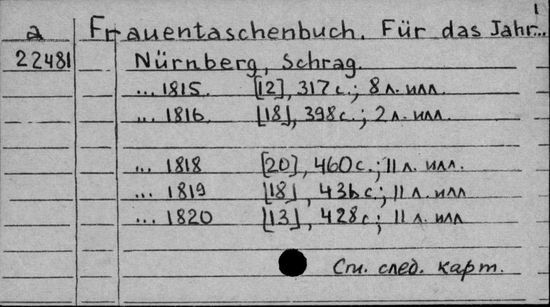 1
a Frauentaschenbuch. Für das Jahr...
22481 Nürnberg, Schrag.
... 1815. [12], 317 с.; 8 л. илл.
... 1816. [18], 398 с.; 2 л. илл.
... 1818 [20], 460 с.; 11 л. илл.
... 1819 [18], 436 с.; 11 л. илл
... 1820 [13], 428 с; 11 л. илл
См. след. карт.